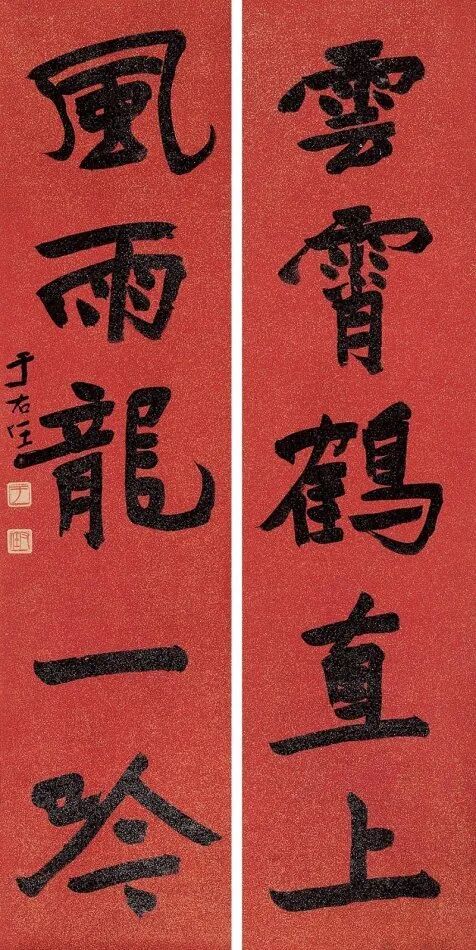 雲霄鶴直上
風雨龍一吟
于右任